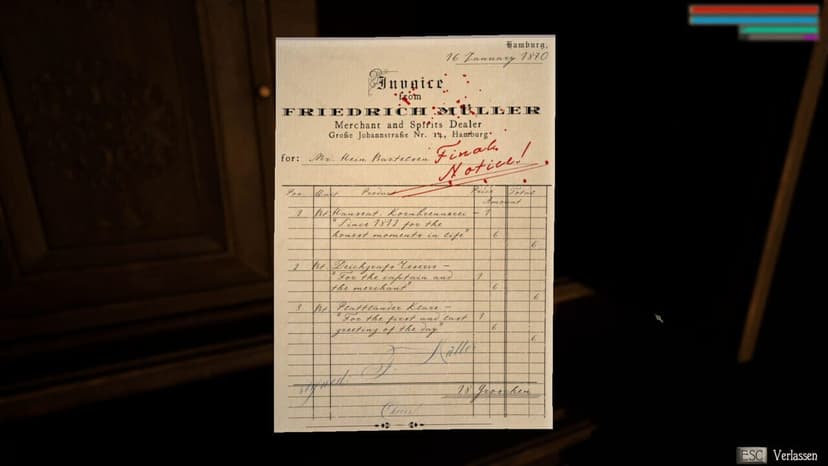 Hamburg,
16 January 1870
Invoice
from
FRIEDRICH MÜLLER
Merchant and Spirits Dealer
Große Johannstraße Nr. 14, Hamburg
for: Mr. Hein Bartelsen
Final
Notice!
Pos. Quat. Product Price Total
Amount
1 Kt. Hanseat. Kornbrennerei - 1
"Since 1812 for the
honest moments in life" 6
6
2 Kt. Deichgrafs Reserve -
"For the captain and 1
the merchant" 6
6
3 Kt. Plattlander Klare -
"For the first and last 1
greeting of the day" 6
6
signed F. Müller
18 Groschen
ESC Verlassen